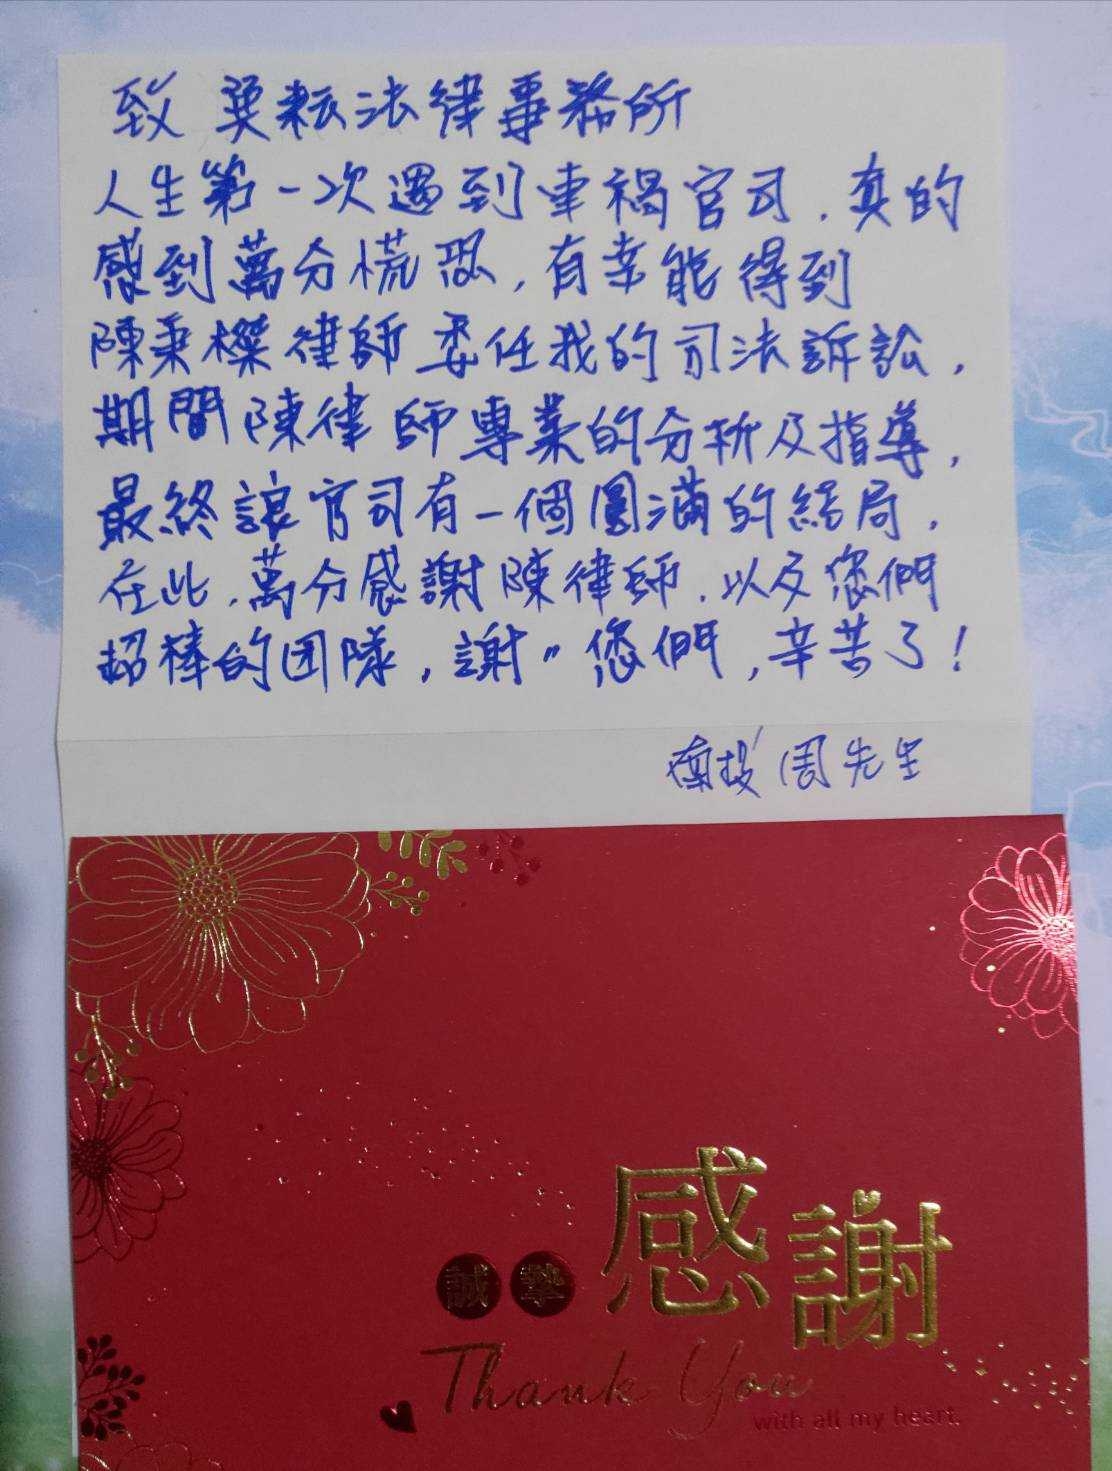 致 奕耘法律事務所
人生第一次遇到車禍官司，真的
感到萬分慌恐，有幸能得到
陳秉榤律師委任我的司法訴訟，
期間陳律師專業的分析及指導，
最終讓官司有一個圓滿的結局，
在此，萬分感謝陳律師，以及您們
超棒的团隊，謝〃您們，辛苦了！
南投 周先生
誠摯 感謝
Thank You
with all my heart.